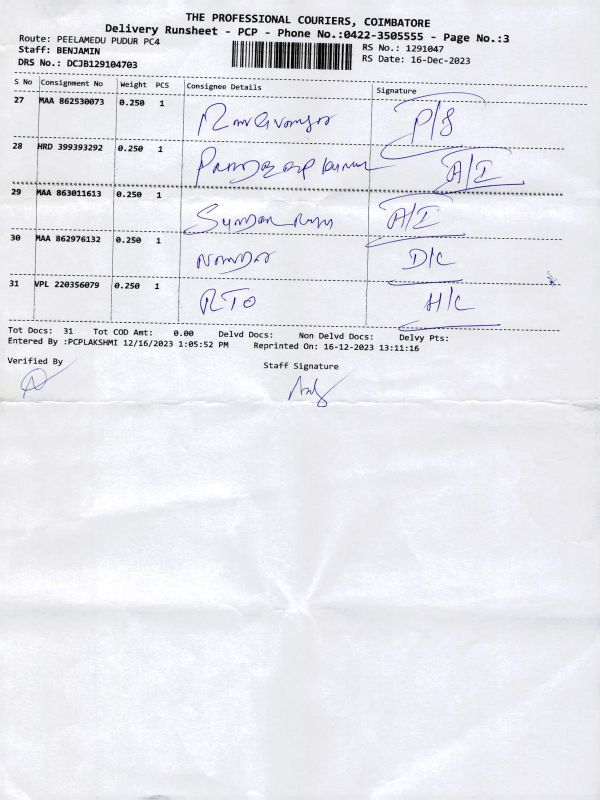 THE PROFESSIONAL COURIERS, COIMBATORE
Delivery Runsheet - PCP - Phone No.:0422-3505555 - Page No.:3
Route: PEELAMEDU PUDUR PC4
RS No.: 1291047
Staff: BENJAMIN
RS Date: 16-Dec-2023
DRS No.: DCJB129104703
S No Consignment No Weight PCS Consignee Details Signature
27 MAA 862530073 0.250 1 P/S
28 HRD 399393292 0.250 1 A/I
29 MAA 863011613 0.250 1 A/I
30 MAA 862976132 0.250 1 D/C
31 VPL 220356079 0.250 1 RTO H/C
Tot Docs: 31 Tot COD Amt: 0.00 Delvd Docs: Non Delvd Docs: Delvy Pts:
Entered By :PCPLAKSHMI 12/16/2023 1:05:52 PM Reprinted On: 16-12-2023 13:11:16
Verified By
Staff Signature